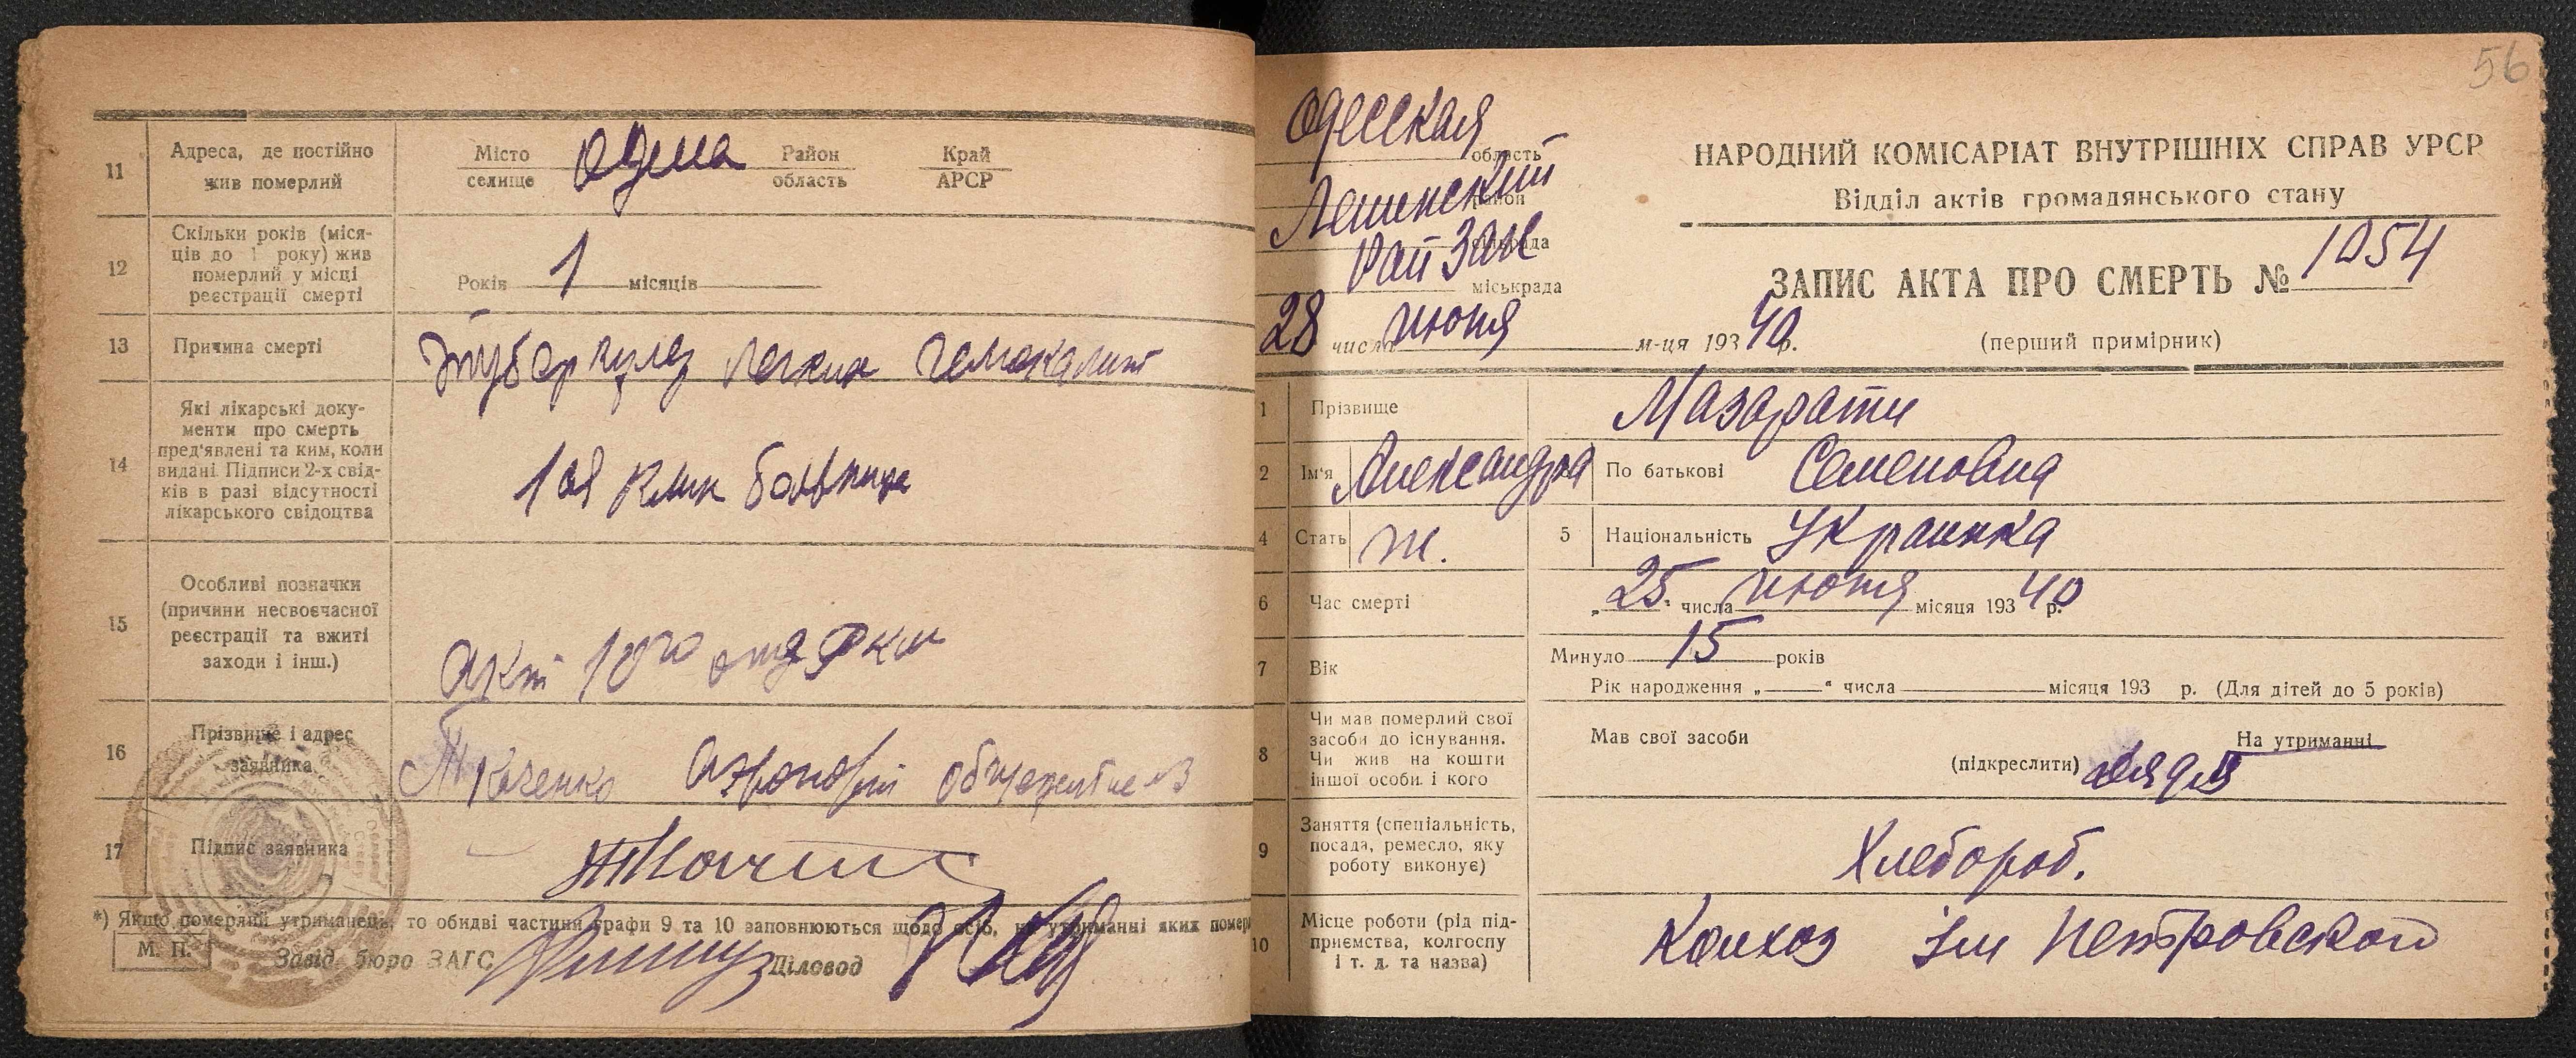 11 Адреса, де постійно жив померлий Місто селище Одесса Район область Край АРСР
12 Скільки років (міся-
ців до 1 року) жив
померлий у місці
реєстрації смерті
Років 1 місяців
13 Причина смерті Туберкулез легких
14 Які лікарські доку-
менти про смерть
пред'явлені та ким, коли
видані. Підписи 2-х свід-
ків в разі відсутності
лікарського свідоцтва
1ая клин больница
15 Особливі позначки
(причини несвоєчасної
реєстрації та вжиті
заходи і інш.)
Акт 10го отд
16 Прізвище і адрес
заявника
Ткаченко общежитие
17 Підпис заявника
*) Якщо померлий утриманець, то обидві частини графи 9 та 10 заповнюються щодо осіб, на утриманні яких помер
М. П. Завід. бюро ЗАГС Діловод
56
Одесская
область
Ленинский
район
Рай Загс
сільрада
міськрада
28 числа июня м-ця 1940 р.
НАРОДНИЙ КОМІСАРІАТ ВНУТРІШНІХ СПРАВ УРСР
Відділ актів громадянського стану
ЗАПИС АКТА ПРО СМЕРТЬ № 1054
(перший примірник)
1 Прізвище Мазарати
2 Ім'я Александра По батькові Семеновна
4 Стать ж. 5 Національність Украинка
6 Час смерті „25" числа июня місяця 193 40 р.
7 Вік Минуло 15 років
Рік народження „ " числа місяця 193 р. (Для дітей до 5 років)
8 Чи мав померлий свої
засоби до існування.
Чи жив на кошти
іншої особи і кого
Мав свої засоби (підкреслити) На утриманні
дядя
9 Заняття (спеціальність,
посада, ремесло, яку
роботу виконує)
Хлебороб.
10 Місце роботи (рід під-
приємства, колгоспу
і т. д. та назва)
Колхоз Им Петровского